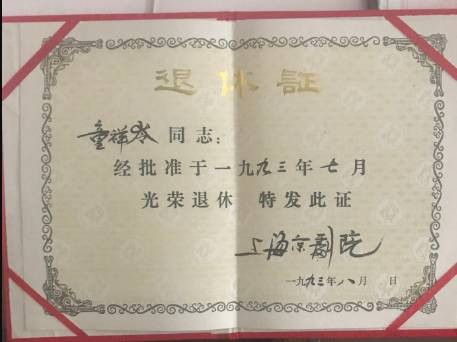 退休証
童祥苓 同志:
经批准于一九九三年七月
光荣退休 特发此证
上海京剧院
一九九三年八月 日